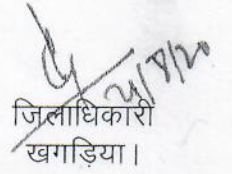 21/8/20
जिलाधिकारी
खगड़िया।